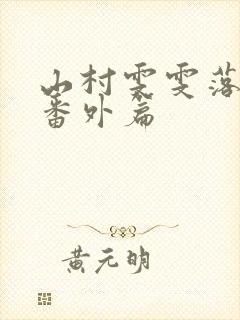 山村雯雯落
番外篇
黄元明